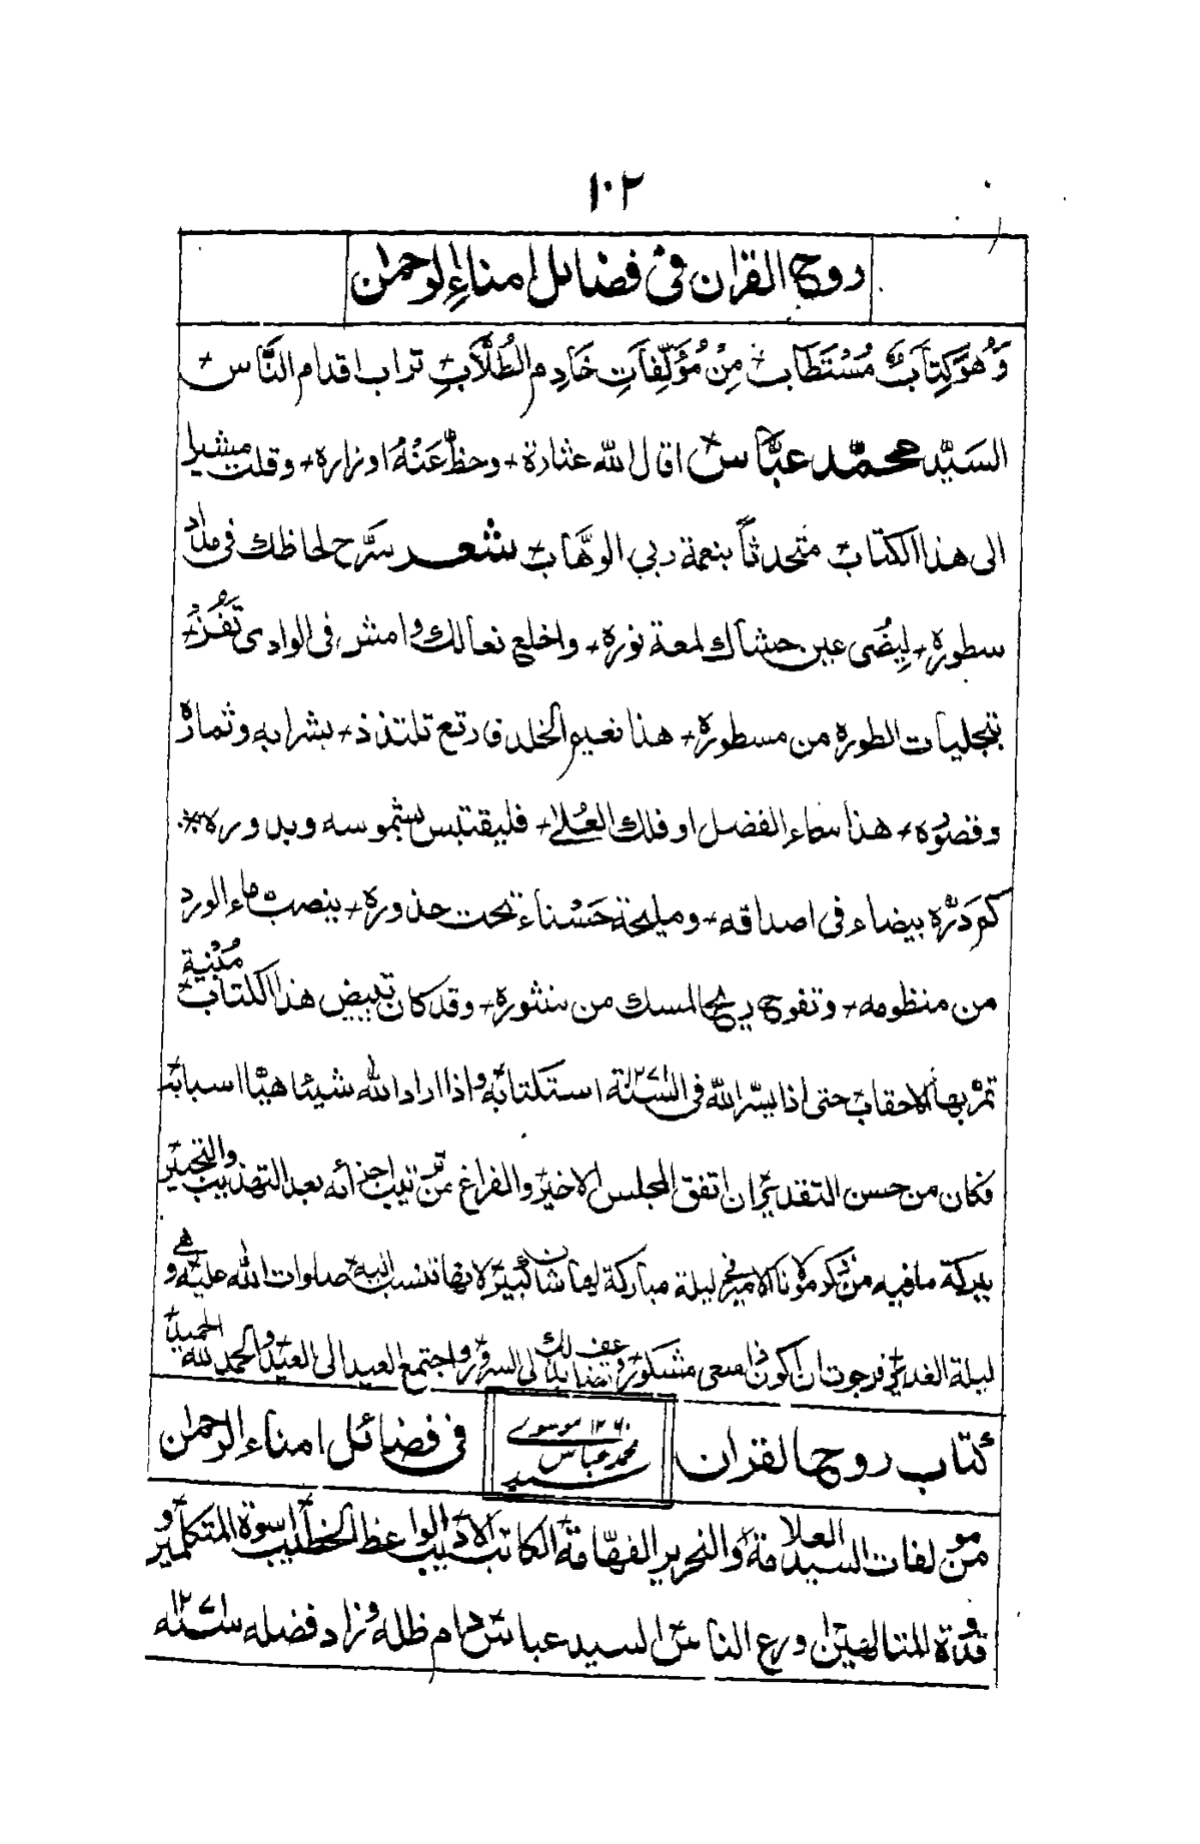 ١٠٢
روح القران فى فضائل امناء الرحمان
وَهُوَ كِتَابٌ مُسْتَطَابٌ مِنْ مُؤَلَّفاتِ خَادِمِ الطُلَّابِ تراب اقدام النَّاس
السَيِّد محمّد عبَّاس اقال الله عثاره وحطَّ عَنْهُ اوزاره وقلت مشيرا
الى هذا الكتاب متحدثاً بنعمة ربي الوهَّاب شعر سَرِّح لحاظك فى مداد
سطوره لِيُضئ عين حشاك لمعة نوره واخلع نعالك وامش فى الوادى تَفُزْ
بتجليات الطوره من مسطوره هذا نعيم الخلد فارتع تلتذذ بشرابه وثماره
وقصوره هذا سماء الفضل او فلك العُلى فليقتبس بشموسه وبدوره
كم دُرّه بيضاء فى اصدافه ومليحة حَسْناء تحت خدوره ينصب ماء الورد
من منظومه وتفوح ريح المسك من منثوره وقد كان تبييض هذا الكتاب مُنْية
تمرّ بها الاحقاب حتى اذا يسّر الله فى السنة ١٢٧١ استكتابه واذا اراد الله شيئا هيّأ اسبابه
فكان من حسن التقدير ان اتفق المجلس الاخير والفراغ من ترتيب اجزائه بعد التهذيب والتحبير
ببركة ما فيه من ذكر مولانا الامير فى ليلة مباركة لها شان كبير لانها تنسب اليه صلوات الله عليه وهى
ليلة الغدير فرجوت ان اكون ذا سعى مشكور واجتمع العيد الى العيد والحمد لله الحميد
كتاب روح القران
١٢٦٠ موسوى
محمد عباس
سيد
فى فضائل امناء الرحمن
من مولفات السيد العلامة والنحرير الفهّامة الكاتب الاديب الواعظ الخطيب اسوة المتكلمين و
قدوة المتالهين اورع الناس السيد عباس دام ظله وزاد فضله سنه ١٢٧١